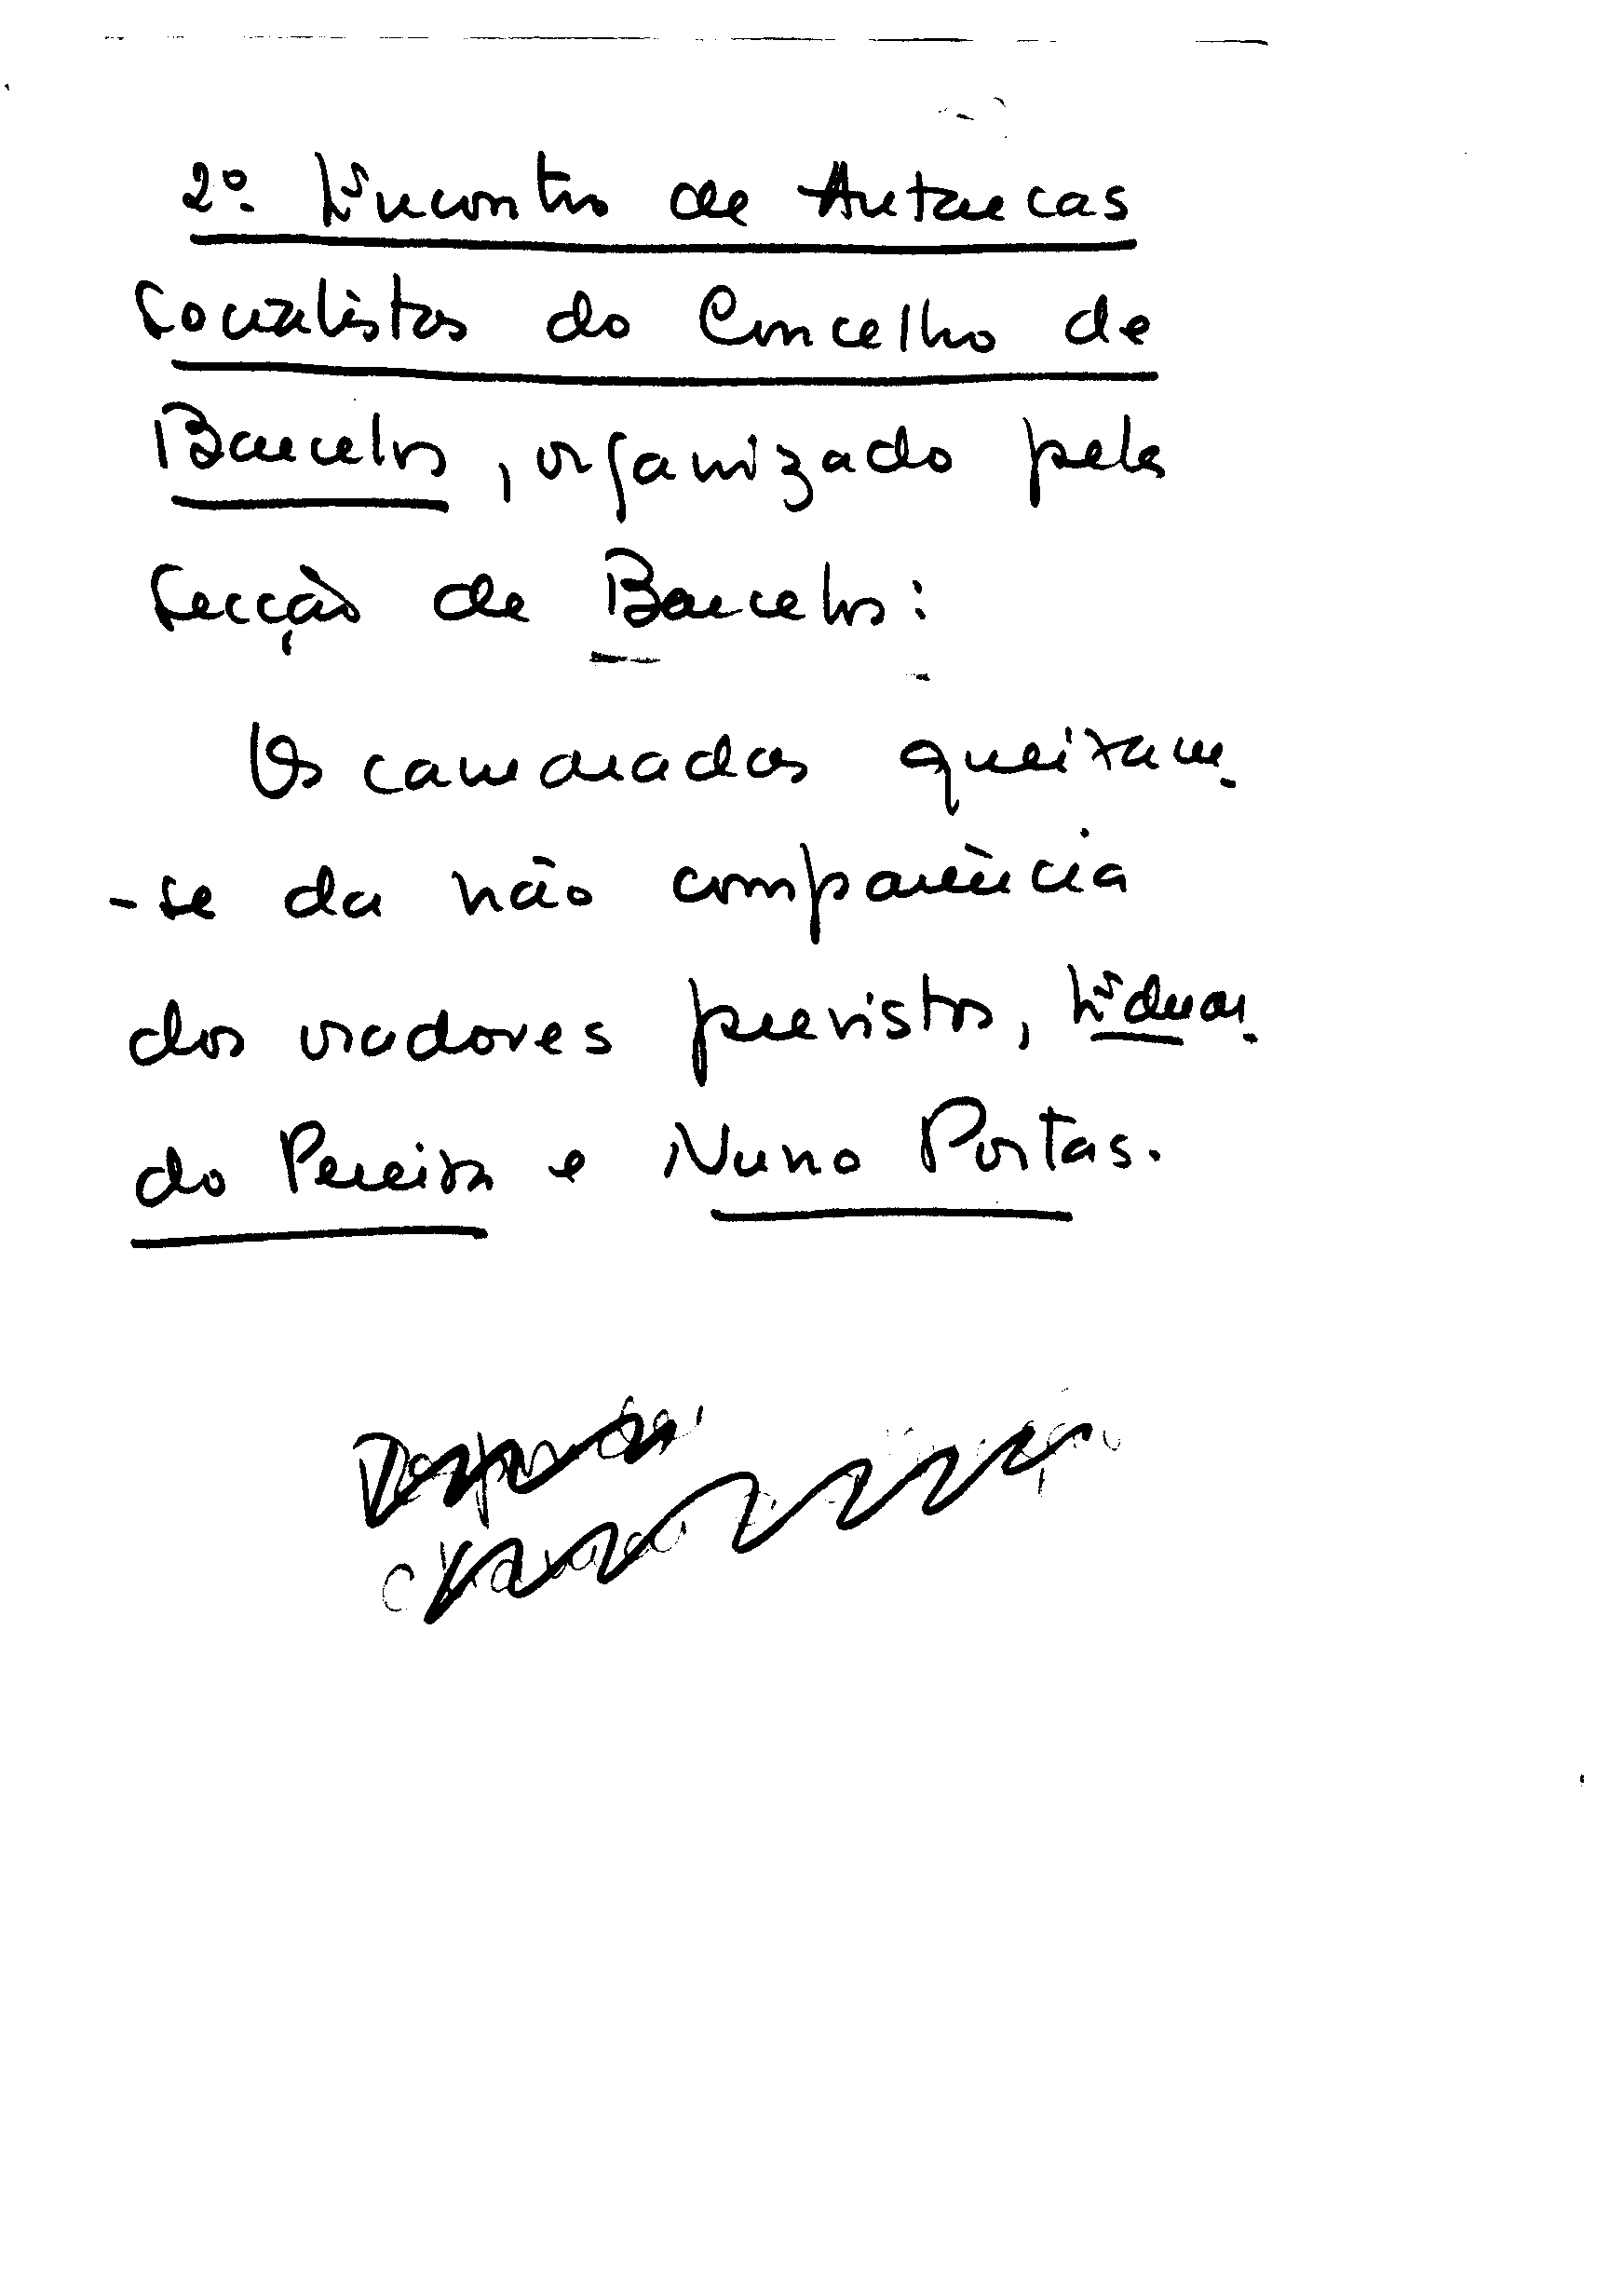 2º. Encontro de Autarcas
Socialistas do Concelho de
Barcelos, organizado pela
Secção de Barcelos:
Os camaradas queixam-
-se da não comparência
dos oradores previstos, Eduar-
do Pereira e Nuno Portas.